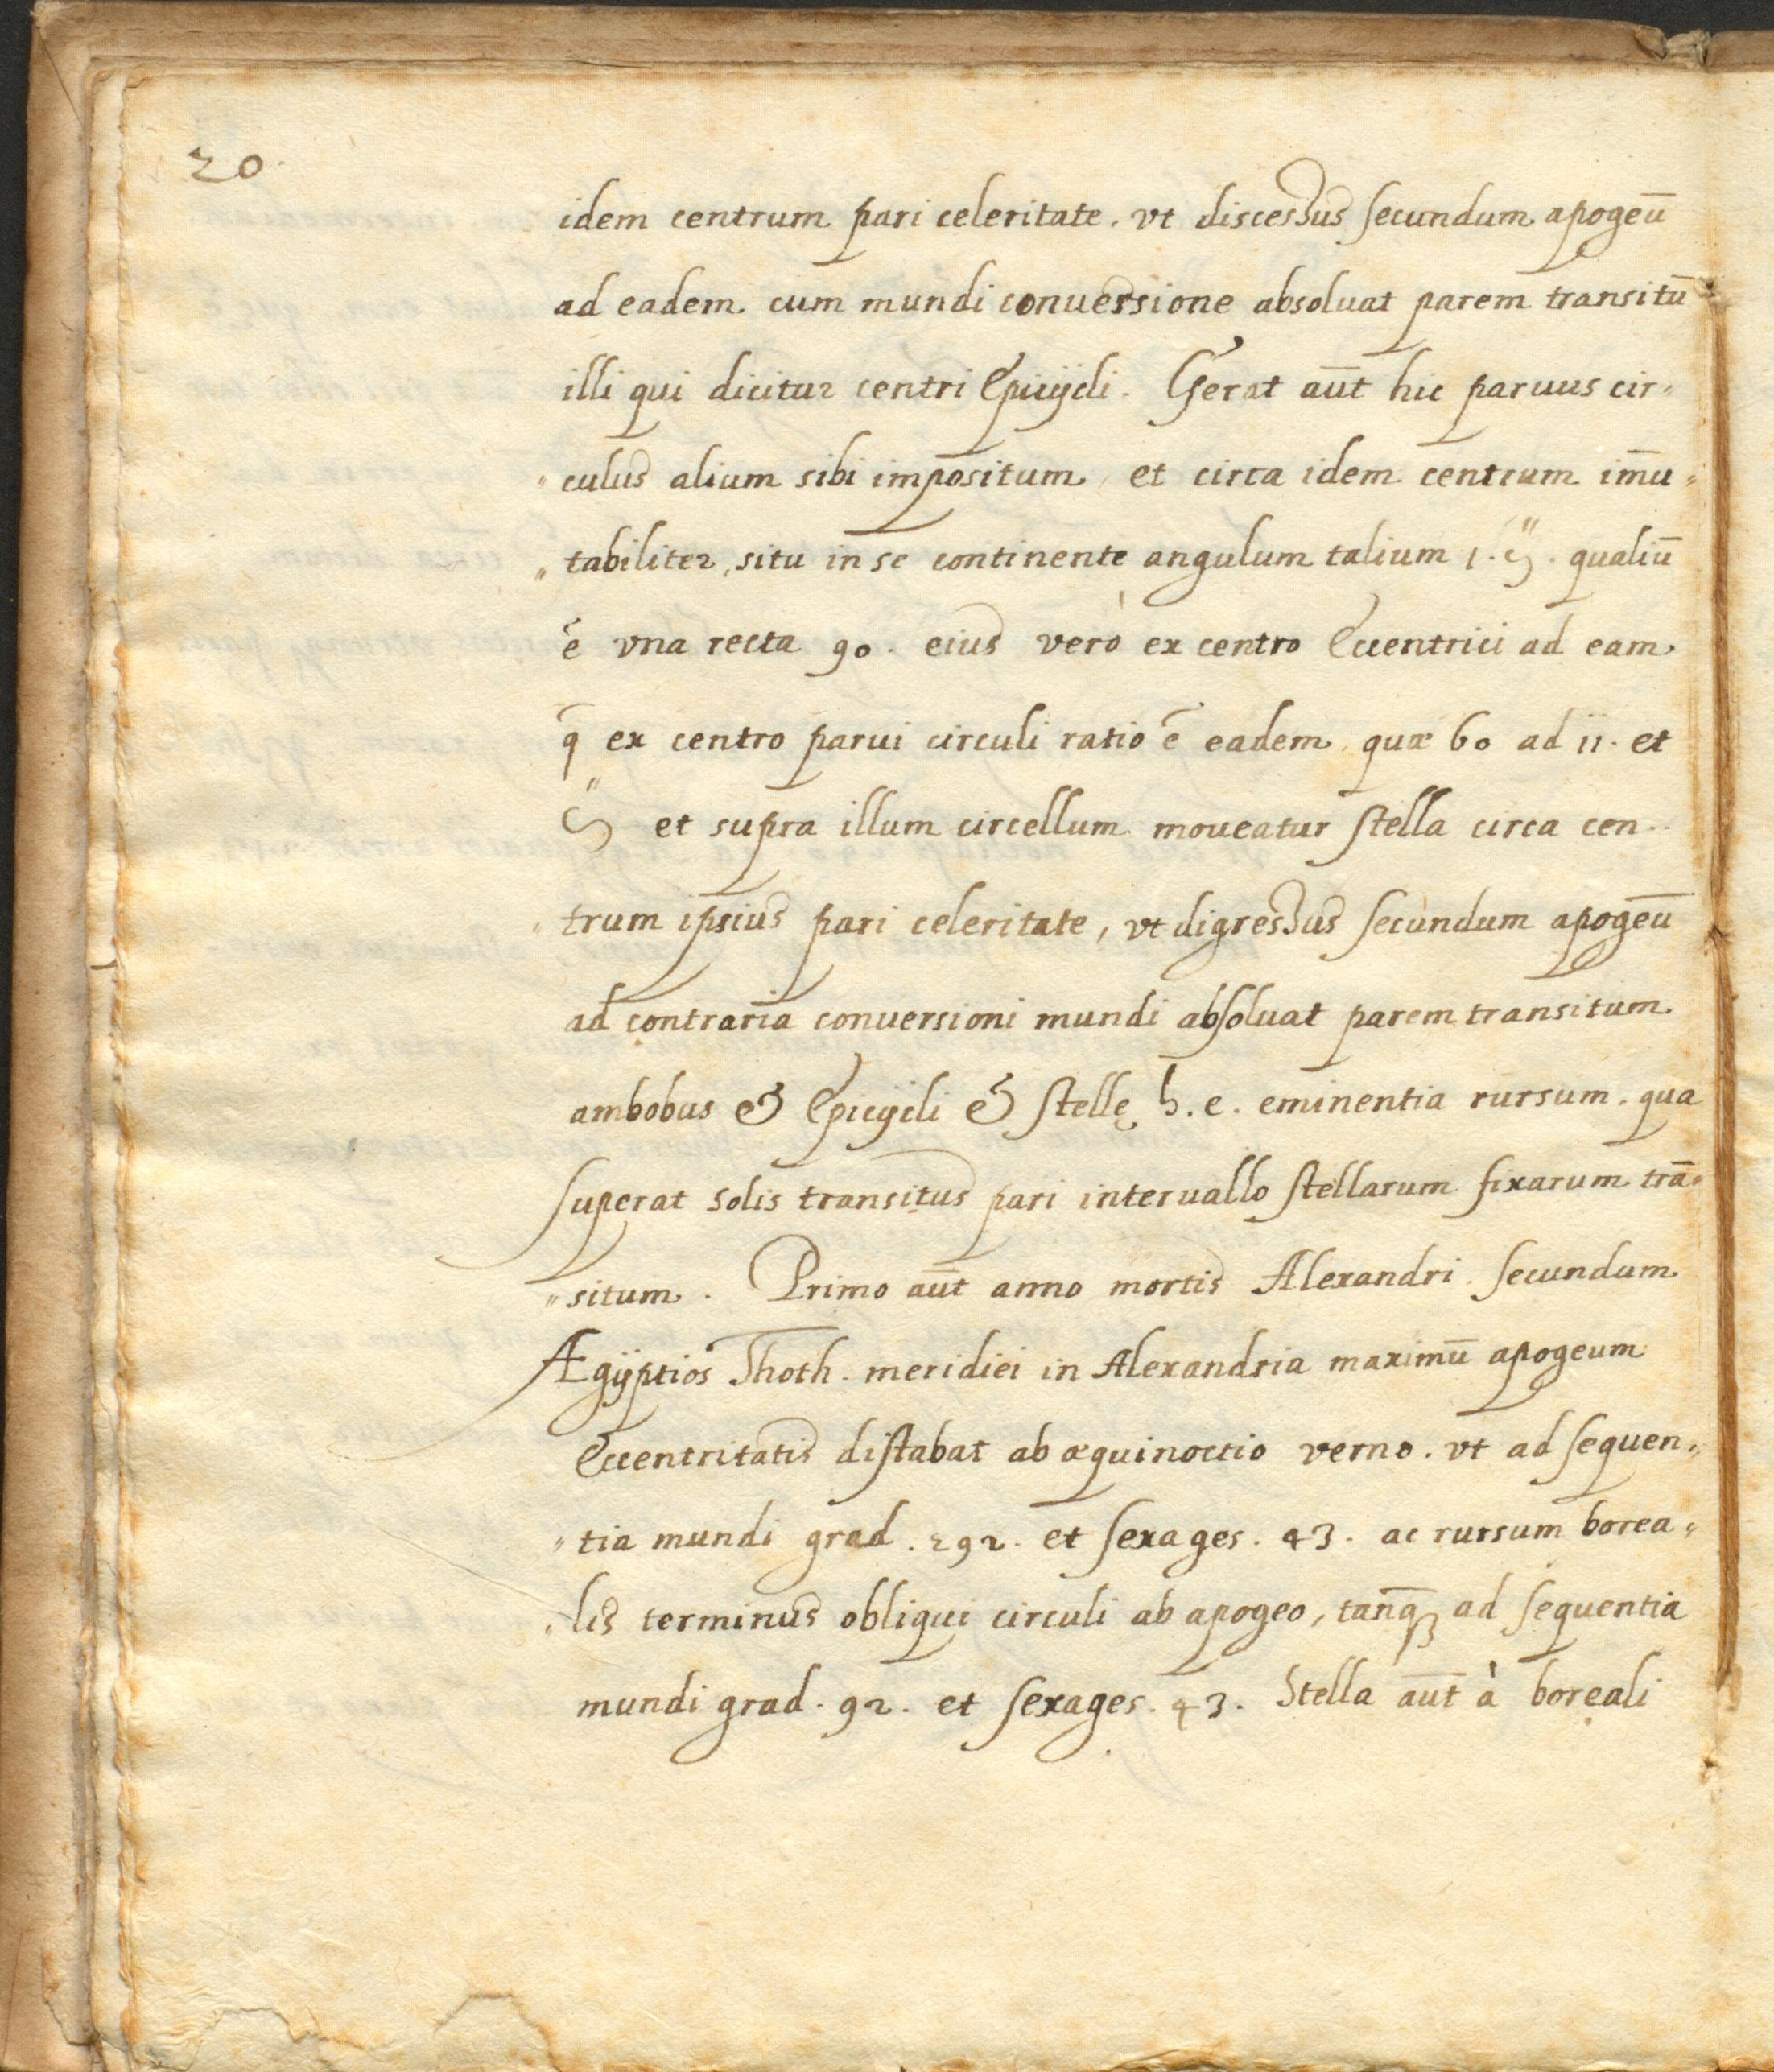 20.
idem centrum pari celeritate. vt discessus secundum apogeū
ad eadem. cum mundi conuersione absoluat parem transitū
illi qui dicitur centri Epicÿcli. Gerat aūt hic paruus cir=
"culus alium sibi impositum, et circa idem centrum im̄u=
"tabiliter, situ in se continente angulum talium 1. ϛ". qualiū
ē vna recta 90. eius verò ex centro Eccentrici ad eam
q̄ ex centro parui circuli ratio ē eadem, quæ 60 ad ii. et
ϛ" et supra illum circellum moueatur stella circa cen=
"trum ipsius pari celeritate, vt digressus secundum apogeū
ad contraria conuersioni mundi absoluat parem transitum
ambobus & Epicÿcli & stellę h.e. eminentia rursum. qua
superat solis transitus pari interuallo stellarum fixarum trā=
"situm. Primo aūt anno mortis Alexandri. secundum
Ægÿptios Thoth. meridiei in Alexandria maximū apogeum
Eccentritatis distabat ab æquinoctio verno. vt ad sequen=
"tia mundi grad. 292. et sexages. 43. ac rursum borea=
"lis terminus obliqui circuli ab apogeo, tanq̄ ad sequentia
mundi grad. 92. et sexages. 43. Stella aūt à boreali